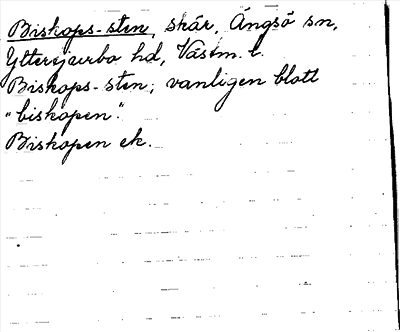 Biskops-sten, skär, Ängsö sn,
Yttertjurbo hd, Västm. l.
Biskops-sten; vanligen blott
"biskopen".
Biskopen ek.